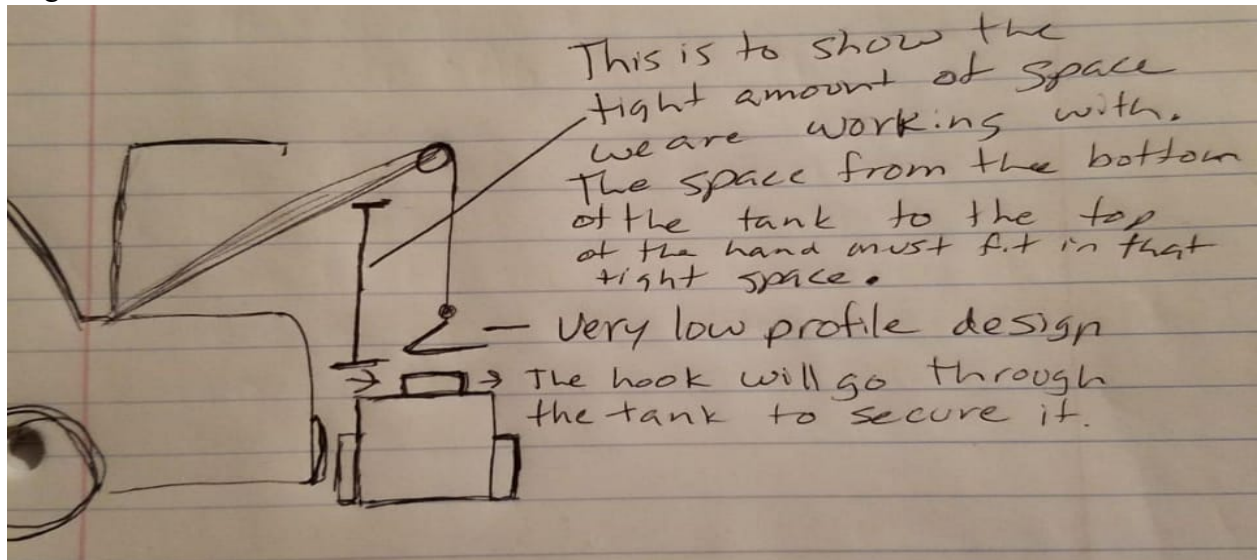 This is to show the
tight amount of space
we are working with.
The space from the bottom
of the tank to the top
of the hand must fit in that
tight space.
very low profile design
The hook will go through
the tank to secure it.